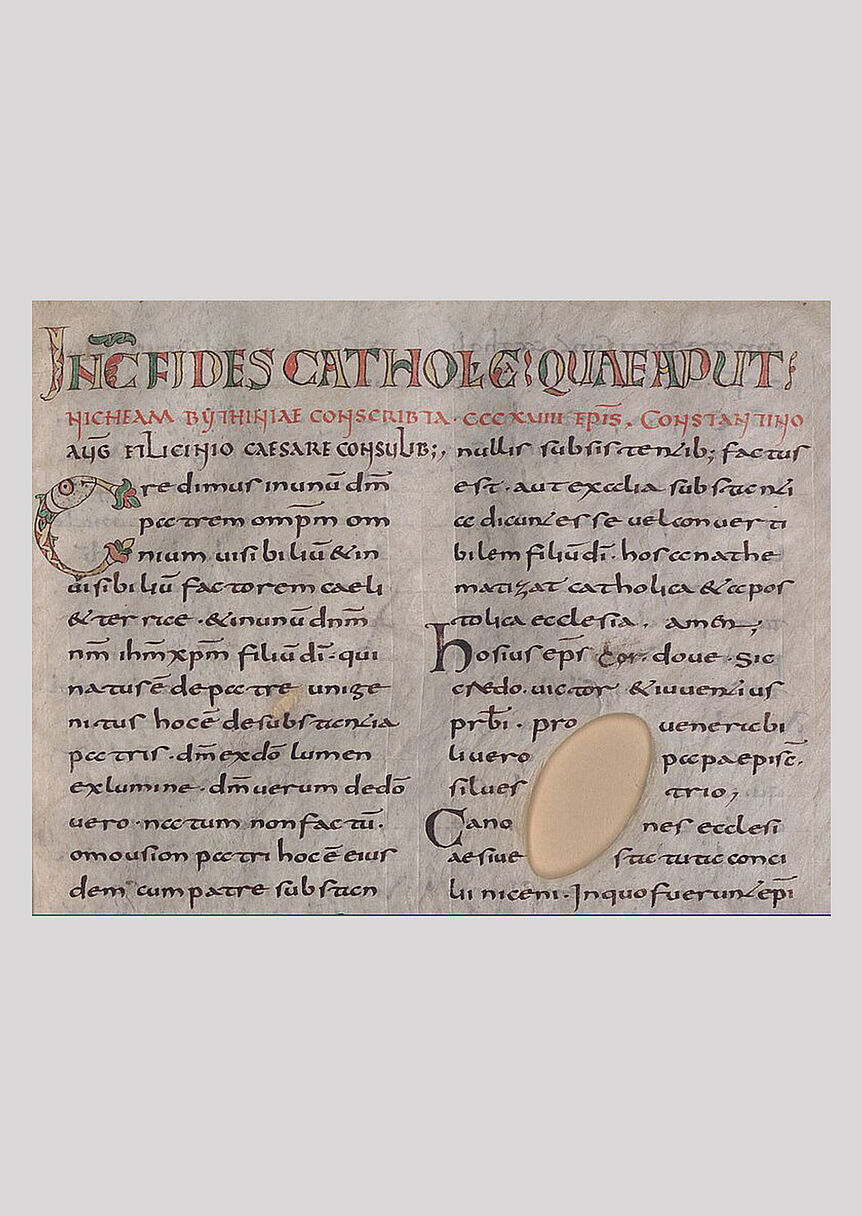 INC̄ FIDES CATHOLCE: QUAE APUT:
NICHEAM BYTHINIAE CONSCRIBTA · CCCXVIII EPIS. CONSTANTINO
AUG ET LICINIO CAESARE CONSULIB;,
Credimus in unū dm̄
patrem omp̄m om
nium uisibiliū & in
uisibiliū factorem caeli
& terrae · & in unū dnm̄
nm̄ ihm̄ xpm̄ filiū dī · qui
natus ē de patre unige
nitus hoc ē de substantia
patris · dm̄ ex dō lumen
ex lumine · dm̄ uerum de dō
uero · natum non factū ·
omousion patri hoc ē eius
dem cum patre substan
nullis subsistentib; factus
est · aut ex alia substanti
a dicunt esse uel conuerti
bilem filiū dī · hos anathe
matizat catholica & apos
tolica ecclesia, amen;
hosius ep̄s cor. doue · Sic
credo · uictor & iuuentius
prb̄i · pro uenerabi
li uero papa episc̄.
silues trio;
Canones ecclesi
ae siue statuta conci
lii niceni · In quo fuerunt ep̄i